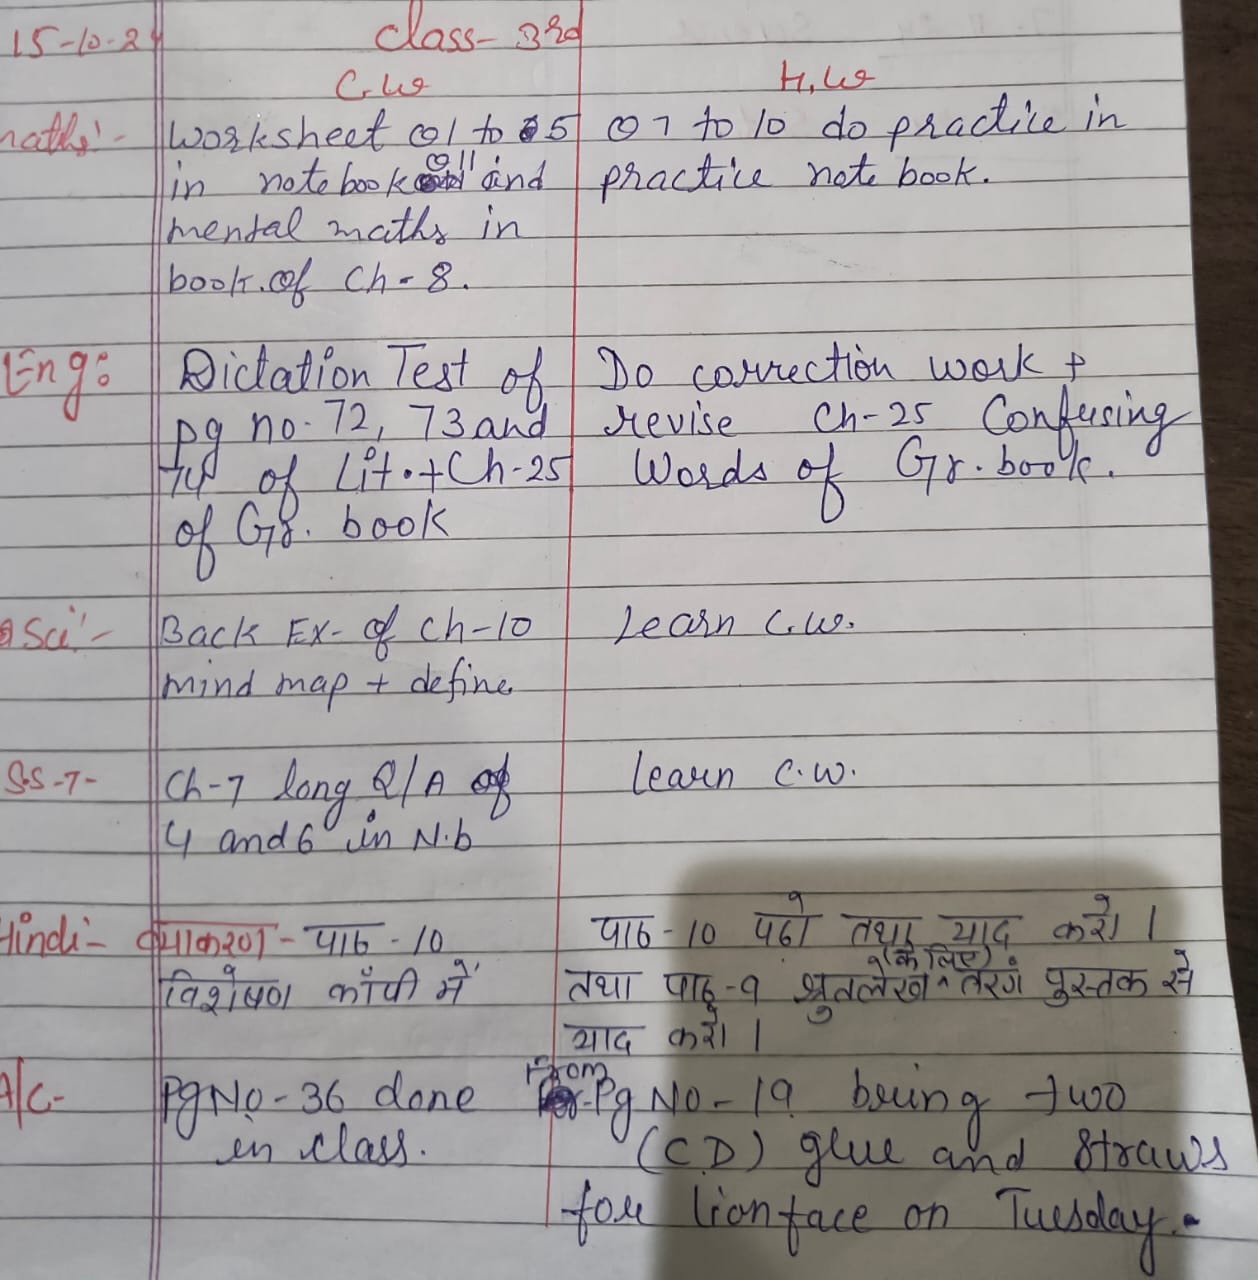 15-10-24 Class- 3rd
C.W H.W
maths:- Worksheet Q1 to 5 Q7 to 10 do practice in
in notebook Q11 and practice note book.
mental maths in
book. of Ch-8.
Eng: Dictation Test of Do correction work +
pg no. 72, 73 and revise Ch-25 Confusing
74 of Lit.+Ch-25 Words of Gr. book.
of Gr. book
Sci:- Back Ex- of Ch-10 Learn C.W.
mind map + define
S.S-7- Ch-7 long Q/A of learn C.W.
4 and 6 in N.b
Hindi- व्याकरण - पाठ -10 पाठ -10 पढ़ो तथा याद करो।
विशेषण कॉपी में तथा पाठ -9 श्रुतलेख (के लिए) तरंग पुस्तक से
याद करो।
A/C- Pg No-36 done From Pg No-19 bring two
in class. (CD) glue and straws
for lion face on Tuesday.